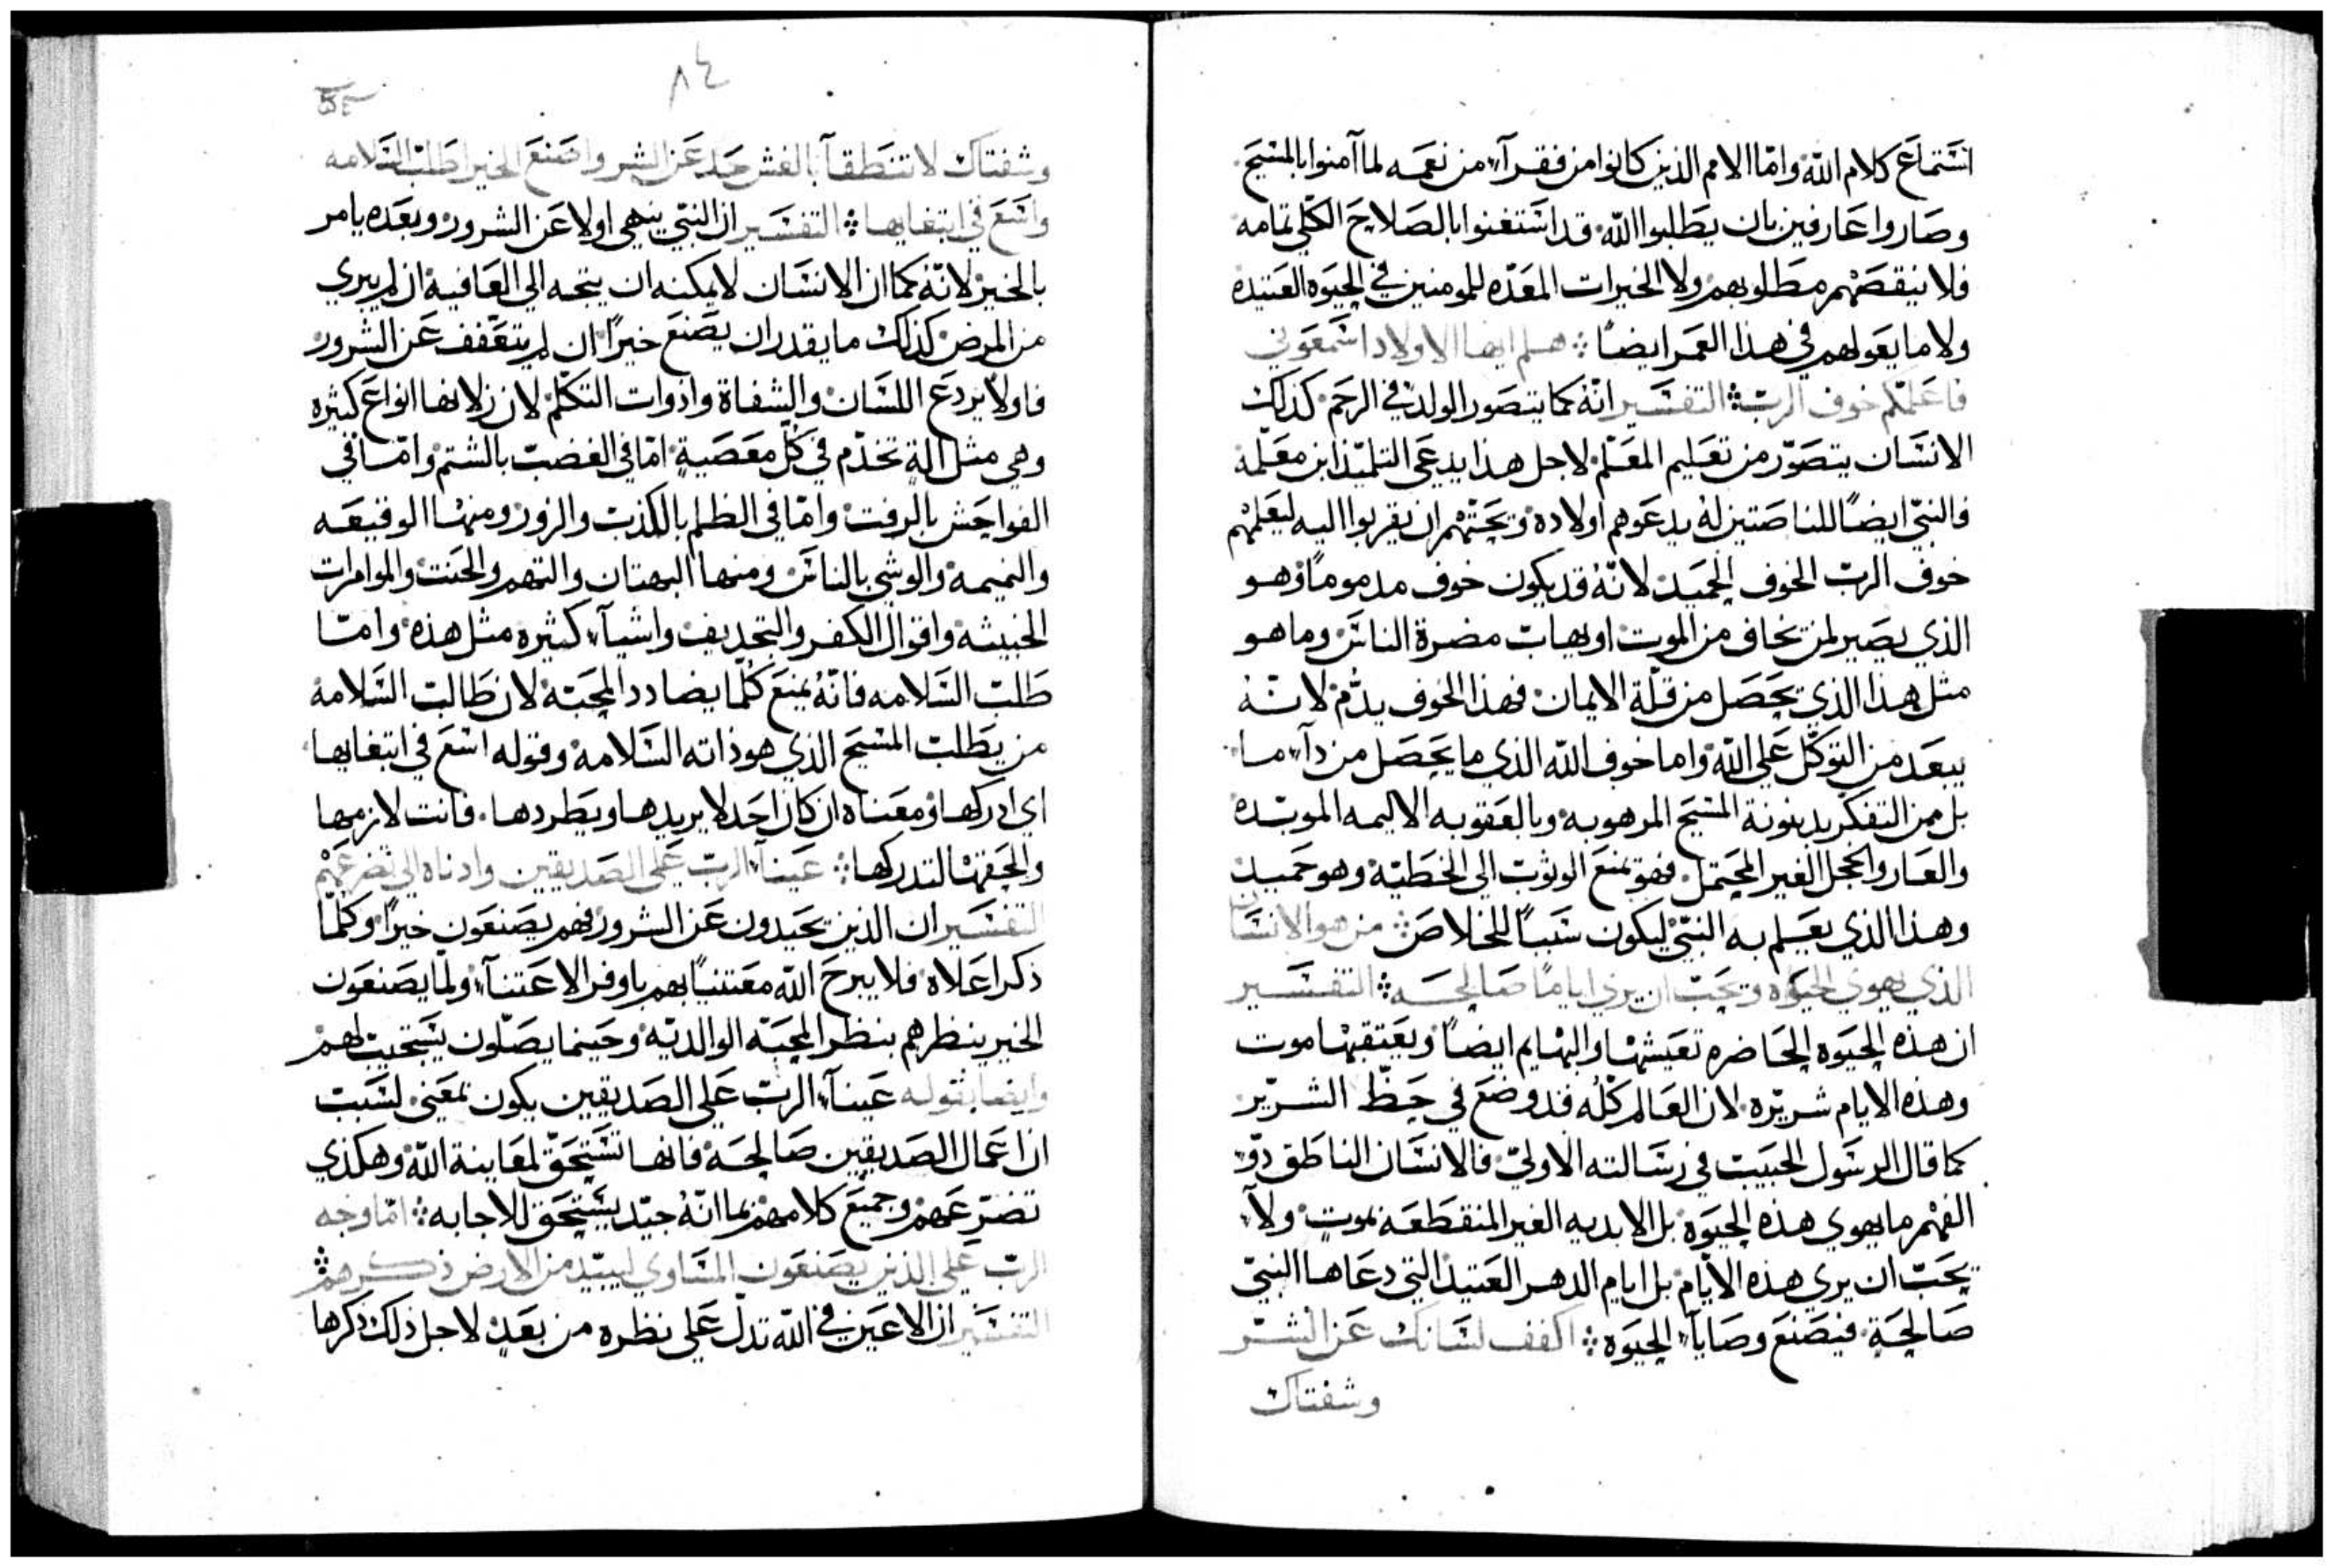 استماع كلام الله وامّا الامم الذين كانوا من فقرآء من نعمه لما آمنوا بالمسيح
وصاروا عارفين بان يطلبوا الله قد استغنوا بالصلاح الكلي تمامه
فلا ينقصهم مطلوبهم ولا الخيرات المعدّه للمومنين في الحيوه العتيده
ولا ما يعولهم في هذا العمر ايضاً ⁘ هلم ايها الاولاد اسمعوني
فاعلمكم خوف الرب ⁘ التفسير انّه كما يتصور الولد في الرحم كذلك
الانسان يتصوّر من تعليم المعلّم لاجل هذا يدعى التلميذ ابن معلّمه
فالنبي ايضاً للناصتين له يدعوهم اولاده ويحثّهم ان يقربوا اليه ليعلمهم
خوف الرب الخوف الحميد لانّه قد يكون خوف مذموماً وهو
الذي يصير لمن يخاف من الموت او يهاب مضرة الناس وما هو
مثل هذا الذي يحصل من قلّة الايمان فهذا الخوف يذّم لانّه
يبعد من التوكّل على الله واما خوف الله الذي ما يحصل من دآء ما
بل من التفكر بدينونة المسيح المرهوبه وبالعقوبه الاليمه الموبّده
والعار والخجل الغير المحتمل فهو يمنع الوثوب الى الخطيّه وهو حميد
وهذا الذي يعلم به النبي ليكون سبباً للخلاص ⁘ من هو الانسان
الذي يهوي الحيوه ويحبّ ان يري اياماً صالحه ⁘ التفسير
ان هذه الحيوه الحاضره تعيشها والبهايم ايضاً ويعتقبها موت
وهذه الايام شريّره لان العالم كلّه قد وضع في حظّ الشرّير
كما قال الرسول الحبيب في رسالته الاولي فالانسان الناطق ذو
الفهم ما يهوي هذه الحيوه بل الابديه الغير المنقطعه بموت ولا
يحبّ ان يري هذه الايام بل ايام الدهر العتيد التي دعاها النبيّ
صالحةٍ فيصنع وصايآء الحيوه ⁘ اكفف لسانك عن الشّر
وشفتاك
٨٤
وشفتاك لا تنطقآ بالغش حد عن الشر واصنع الخير اطلب السلامه
واسع في ابتغايها ⁘ التفسير ان النبّي ينهى اولا عن الشرور وبعده يامر
بالخير لانّه كما ان الانسان لا يمكنه ان يتجه الى العافيه ان لم يبري
من المرض كذلك ما يقدر ان يصنع خيراً ان لم يتعفف عن الشرور
فاولاً يردع اللسان والشفاة وادوات التكلّم لان زلاتها انواع كثيره
وهي مثل الةٍ تخدّم في كل معصيةٍ امّا في الغضب بالشتم وامّا في
الفواحش بالرفت وامّا في الظلم بالكذب والزور ومنها الوقيعه
والنميمه والوشي بالناس ومنها البهتان والتهم والحنث والموامرات
الخبيثه واقوال الكفر والتجديف واشيآء كثيره مثل هذه وامّا
طلب السلامه فانّه يمنع كلما يضادد المحبّه لان طالب السلامه
من يطلب المسيح الذي هو ذاته السلامه وقوله اسع في ابتغايها
اي ادركها ومعناه ان كان احد لا يريدها ويطردها. فانت لازمها
والحقها لتدركها ⁘ عينآء الرب على الصديقين واذناه الي تضرعهم
التفسير ان الذين يحيدون عن الشرور فهم يصنعون خيراً وكلما
ذكر اعلاه فلا يبرح الله معتنياً بهم باوفر الاعتنآء ولما يصنعون
الخير ينظرهم بنظر المحبّه الوالديّه وحينما يصلّون يستجيب لهم
وايضا بقوله عينآء الرب على الصديقين يكون بمعني لسبب
ان اعمال الصديقين صالحه فانها تستحقّ لمعاينة الله وهكذي
تضرّعهم وجميع كلامهم بما انّه جيّد يستحق للاجابه ⁘ امّا وجه
الربّ علي الذين يصنعون المساوي ليبيّد من الارض ذكرهم ⁘
التفسير ان الاعين في الله تدلّ على نظره من بعدٍ لاجل ذلك ذكرها